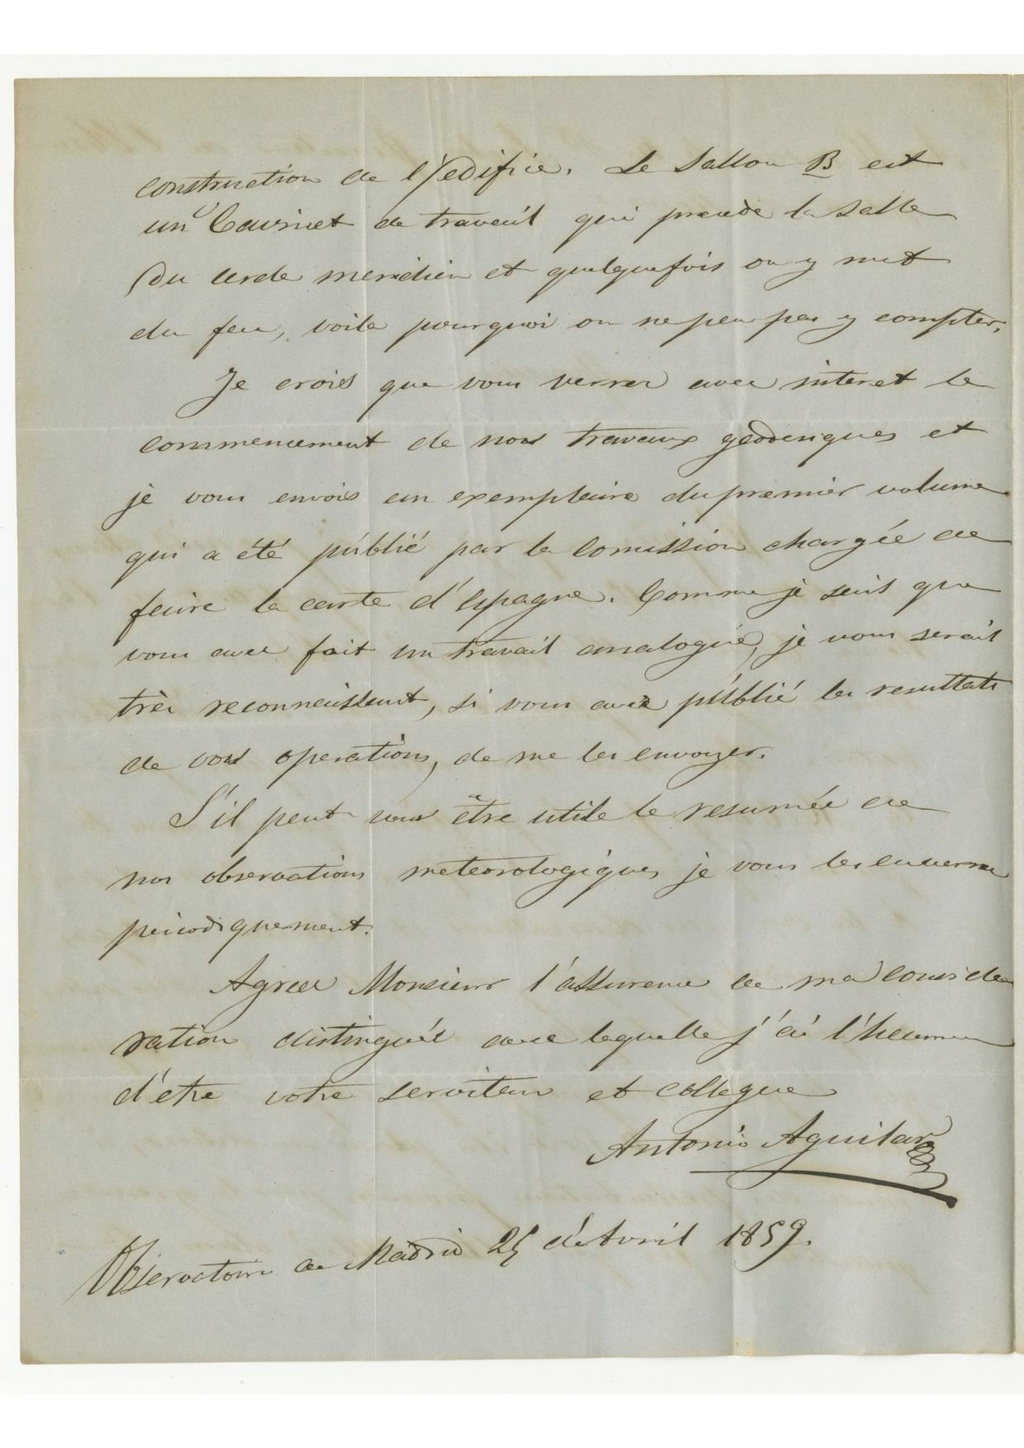 construction de l'edifice. Le Sallon B est
un Cavinet de travail qui precede la Salle
Du cercle meridien et quelquefois on y met
du feu, voila pourquoi on ne peu pas y compter.
Je crois que vous verrez avec interet le
commencement de nos travaux geodesiques et
je vous envois un exemplaire du premier volume
qui a été públié par la Comission chargée de
faire la carte d'Espagne. Comme je sais que
vous avez fait un travail analogue, je vous serait
très reconnaissant, si vous avez públié les resultats
de vos operations, de me les envoyer.
S'il peut vous être utile le resumée de
nos observations meteorologiques je vous les enverrai
periodiquement.
Agreez Monsieur l'assurance de ma conside
ration distinguée avec laquelle j'ai l'honneur
d'etre votre serviteur et collegue
Antonio Aguilar
Observatoire de Madrid 25 d'Avril 1859.